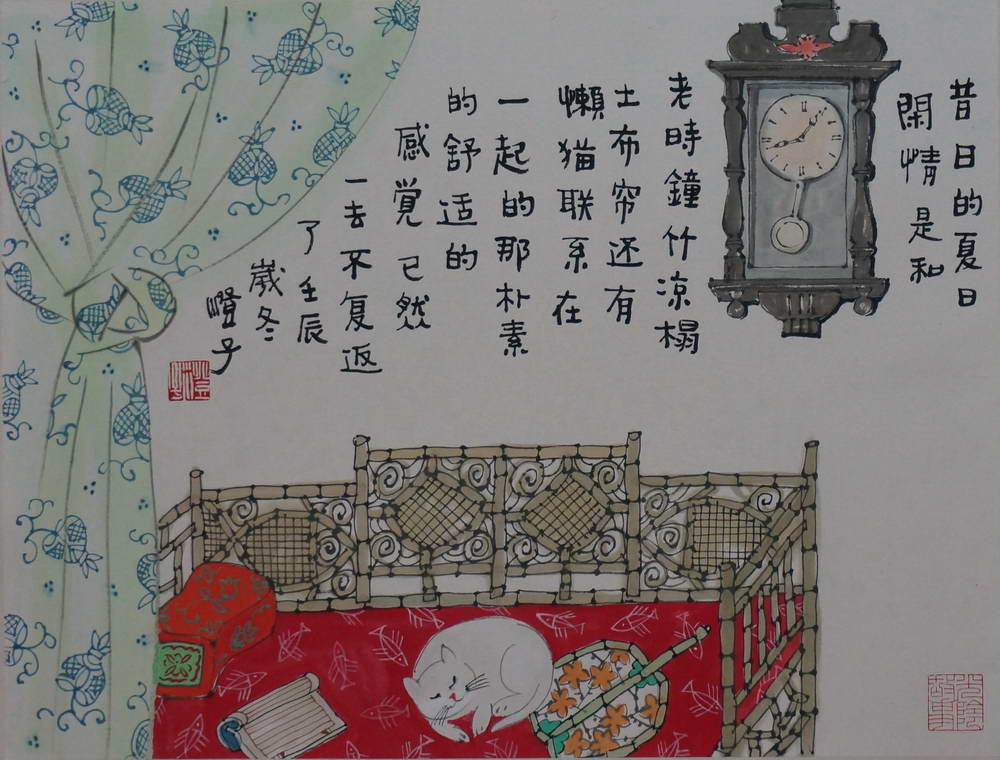 昔日的夏日
閑情是和
老時鐘竹凉榻
土布帘还有
懶猫联系在
一起的那朴素
的舒适的
感覚已然
一去不复返
了壬辰
嵗冬
橙子